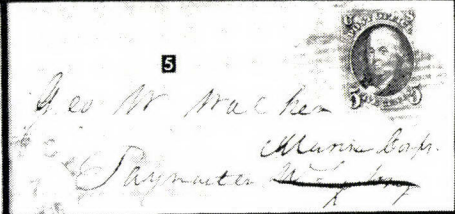 POST OFFICE
5
Geo W Walker
Marine Corps.
Paymaster